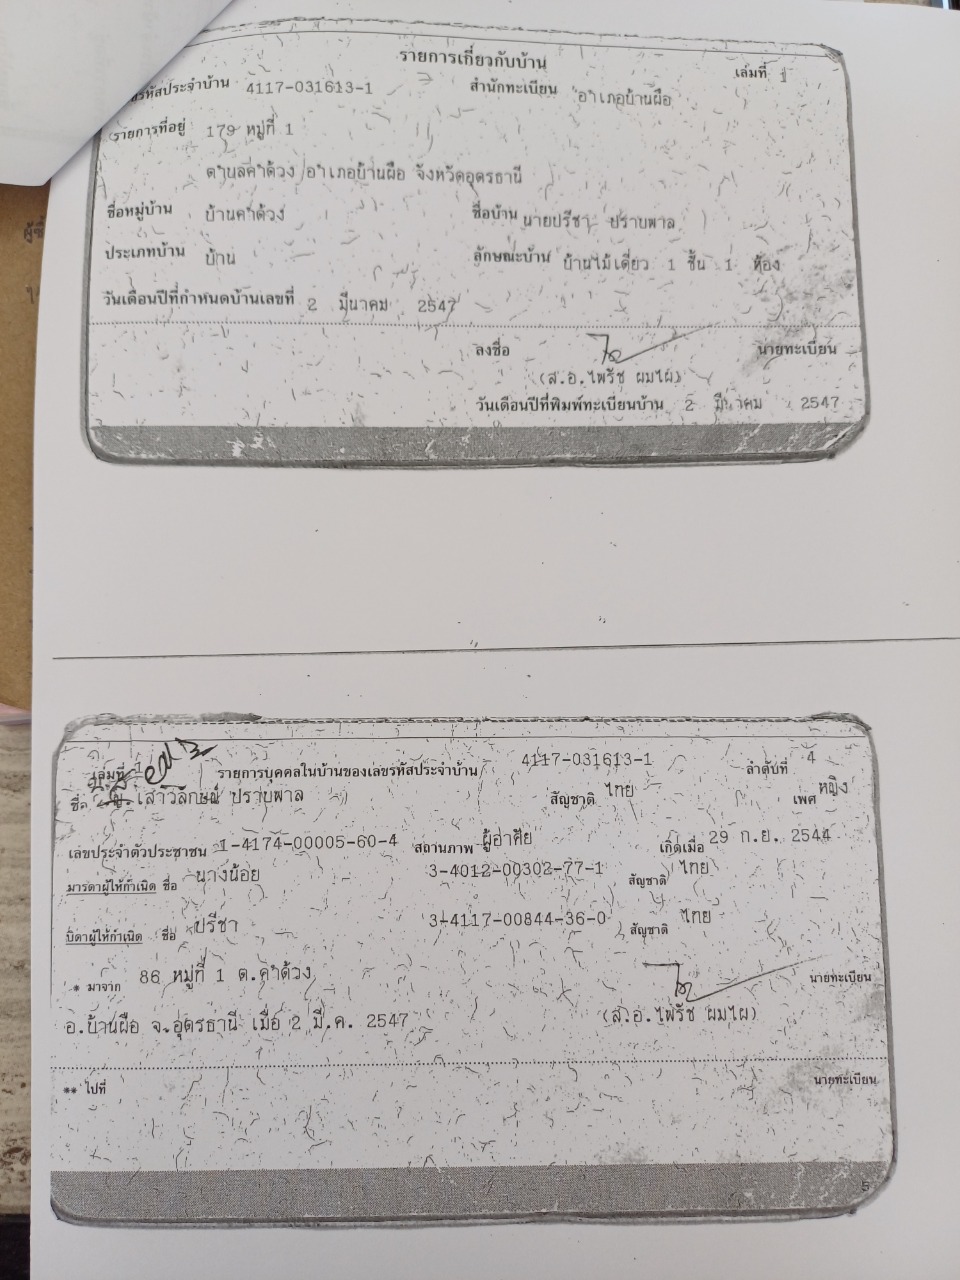 รายการเกี่ยวกับบ้าน
เล่มที่ 1
รหัสประจำบ้าน 4117-031613-1 สำนักทะเบียน อำเภอบ้านผือ
รายการที่อยู่ 179 หมู่ที่ 1
ตำบลคำด้วง อำเภอบ้านผือ จังหวัดอุดรธานี
ชื่อหมู่บ้าน บ้านคำด้วง ชื่อบ้าน นายปรีชา ปราบพาล
ประเภทบ้าน บ้าน ลักษณะบ้าน บ้านไม้เดี่ยว 1 ชั้น 1 ห้อง
วันเดือนปีที่กำหนดบ้านเลขที่ 2 มีนาคม 2547
ลงชื่อ นายทะเบียน
(ส.อ.ไพรัช ผมไผ)
วันเดือนปีที่พิมพ์ทะเบียนบ้าน 2 มีนาคม 2547
เล่มที่ 1 รายการบุคคลในบ้านของเลขรหัสประจำบ้าน 4117-031613-1 ลำดับที่ 4
ชื่อ เสาวลักษณ์ ปราบพาล สัญชาติ ไทย เพศ หญิง
เลขประจำตัวประชาชน 1-4174-00005-60-4 สถานภาพ ผู้อาศัย เกิดเมื่อ 29 ก.ย. 2544
มารดาผู้ให้กำเนิด ชื่อ นางน้อย 3-4012-00302-77-1 สัญชาติ ไทย
บิดาผู้ให้กำเนิด ชื่อ ปรีชา 3-4117-00844-36-0 สัญชาติ ไทย
* มาจาก 86 หมู่ที่ 1 ต.คำด้วง นายทะเบียน
อ.บ้านผือ จ.อุดรธานี เมื่อ 2 มี.ค. 2547 (ส.อ.ไพรัช ผมไผ)
** ไปที่ นายทะเบียน
5